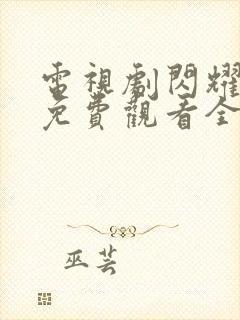 電視劇閃耀
免費觀看全
巫芸